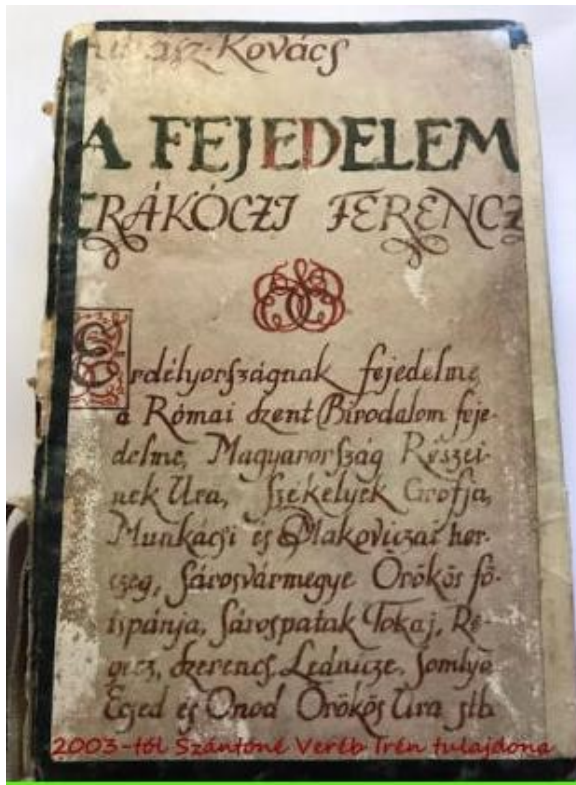 Juhász-Kovács
A FEJEDELEM
RÁKÓCZI FERENCZ
Erdélyországnak fejedelme,
a Római Szent Birodalom feje-
delme, Magyarország Részei-
nek Ura, Székelyek Grófja,
Munkácsi és Makoviczai her-
czeg, Sárosvármegye Örökös fő-
ispánja, Sárospatak Tokaj, Re-
gecz, Szerencs, Lednicze, Somlyó
Ecsed és Ónod Örökös Ura stb
2003-tól Szántóné Veréb Irén tulajdona